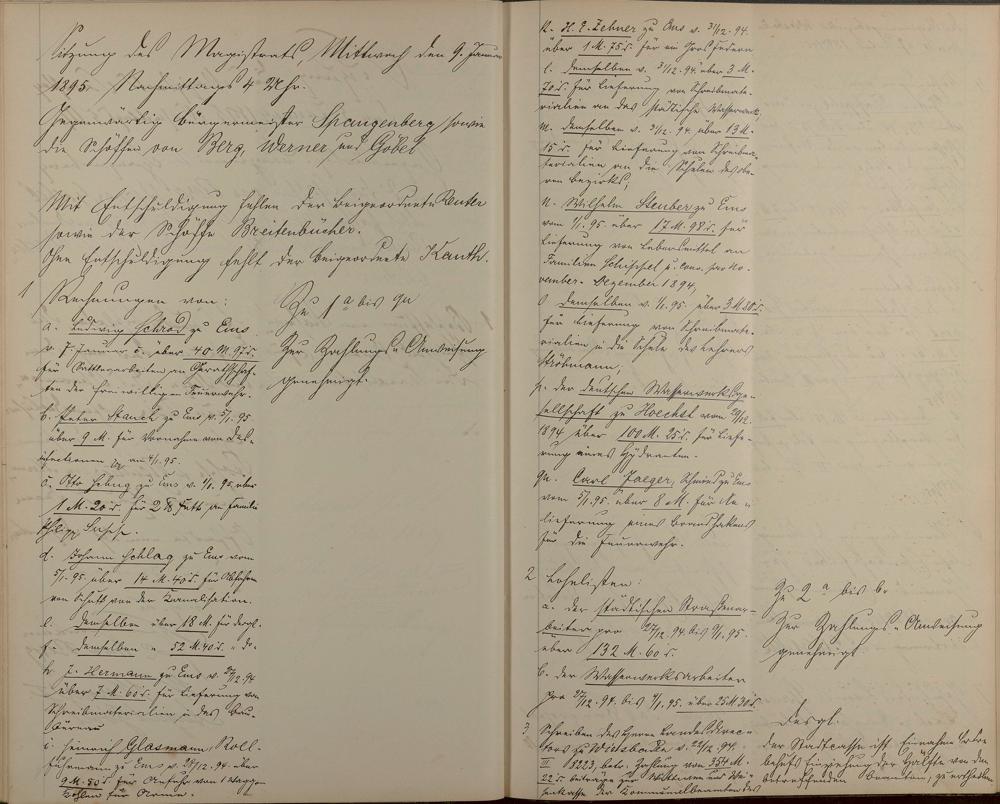 Sitzung des Magistrats, Mittwoch den 9. Januar
1895, Nachmittags 4 Uhr.
Gegenwärtig Bürgermeister Spangenberg sowie
die Schöffen von Berg, Werner und Göbel
Mit Entschuldigung fehlen der Beigeordnete Reuter
sowie der Schöffe Breitenbücher.
Ohne Entschuldigung fehlt der Beigeordnete Kauth.
1 Rechnungen von:
a. Ludwig Schrod zu Ems
v. 7. Januar c. über 40 M. 97 d.
für Sattlerarbeiten an Geräthschaf-
ten der freiwilligen Feuerwehr.
b. Peter Stauch zu Ems v. 5/1. 95
über 9 M. für Vornahme von Des-
infectionen am 4/1. 95.
c. Otto zu Ems v. 1/1. 95 über
1 M. 20 d. für 2 ℔ Fett an Familie
Philipp
d. Johann Schlag zu Ems vom
5/1. 95 über 14 M. 40 d. für Abfahren
von Schutt von der Kanalisation.
e. demselben über 18 M. für desgl.
f. demselben " 52 M. 40 d. " do.
h. J. Hermann zu Ems v. /12. 94
über 7 M. 60 d. für Lieferung von
Schreibmaterialien in das Bau-
büreau
i. Heinrich Glasmann, Roll-
fuhrmann zu Ems v. 28/12. 94 über
9 M. 50 d. für Anfuhr von 1 Waggon
Kohlen für Arme.
Zu 1 a bis qu
Zur Zahlungs-Anweisung
genehmigt.
k. H. E. Zehner zu Ems v. 31/12. 94.
über 1 M. 75 d. für ein Gros Federn
l. demselben v. 31/12. 94 über 3 M.
70 d. für Lieferung von Schreibmate-
rialien an das städtische Wasserwerk
m. demselben v. 31/12. 94 über 13 M.
15 d. für Lieferung von Schreibma-
terialien an die Schulen des obe-
ren Bezirks,
n. Wilhelm Steuber zu Ems
vom 1/1. 95 über 17 M. 98 d. für
Lieferung von Lebensmittel an
Familien Schischel u. Cons. pro No-
vember-Dezember 1894,
o demselben v. 1/1. 95 über 3 M 80 d.
für Lieferung von Schreibmate-
rialien in die Schule des Lehrers
Ströbmann,
p. der deutschen Wasserwerksge-
sellschaft zu Hoechst vom 29/12.
1894 über 100 M. 25 d. für Liefe-
rung eines Hydranten.
qu. Carl Jaeger, Schmied zu Ems
vom 5/1. 95 über 8 M. für An-
lieferung eines Brandhakens
für die Feuerwehr.
2 Lohnlisten:
a. der städtischen Straßenar-
beiter pro 27/12. 94 bis 9/1. 95.
über 132 M. 60 d.
b. der Wasserwerksarbeiter
pro 27/12. 94. bis 9/1. 95. über 25 M 30 d.
Zu 2 a bis b.
Zur Zahlungs-Anweisung
genehmigt
3 Schreiben des Herrn Landesdirec-
tors zu Wiesbaden v. 22/12. 94.
III 18223, betr. Zahlung von 354 M.
22 d. Beiträge zur Wittwen und Wai-
senkasse der Kommunalbeamten des
Desgl.
Der Stadtkasse ist Einnahme Ordre
behufs Einziehung der Hälfte von den
betreffenden Beamten, zu ertheilen